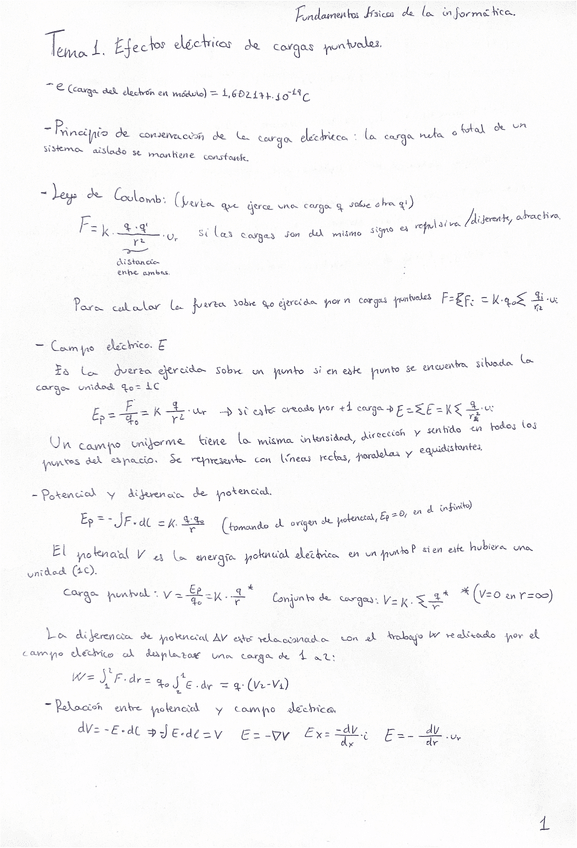 Fundamentos físicos de la informática.
Tema 1. Efectos eléctricos de cargas puntuales.
- e (carga del electrón en módulo) = 1,602177·10⁻¹⁹ C
- Principio de conservación de la carga eléctrica: la carga neta o total de un
sistema aislado se mantiene constante.
- Ley de Coulomb: (fuerza que ejerce una carga q sobre otra q')
F = K · q·q'/r² · uᵣ si las cargas son del mismo signo es repulsiva / diferente, atractiva
distancia
entre ambas
Para calcular la fuerza sobre q₀ ejercida por n cargas puntuales F = ΣFᵢ = K·q₀ Σ qᵢ/rᵢ² · uᵢ
- Campo eléctrico. E
Es la fuerza ejercida sobre un punto si en este punto se encuentra situada la
carga unidad q₀ = 1C
Eₚ = F/q₀ = K q/r² · uᵣ → si está creado por +1 carga → E = ΣE = KΣ q/rᵢ² · uᵢ
Un campo uniforme tiene la misma intensidad, dirección y sentido en todos los
puntos del espacio. Se representa con líneas rectas, paralelas y equidistantes.
- Potencial y diferencia de potencial.
Eₚ = -∫F·dl = K· q·q₀/r (tomando el origen de potencial, Eₚ=0, en el infinito)
El potencial V es la energía potencial eléctrica en un punto P si en este hubiera una
unidad (1C).
Carga puntual: V = Eₚ/q₀ = K· q/r * Conjunto de cargas: V = K· Σ q/r * *(V=0 en r=∞)
La diferencia de potencial ΔV está relacionada con el trabajo W realizado por el
campo eléctrico al desplazar una carga de 1 a 2:
W = ∫₁² F·dr = q₀ ∫₁² E·dr = q·(V₂-V₁)
- Relación entre potencial y campo eléctrico.
dV = -E·dl ⇒ ∫E·dl = V E = -∇V Eₓ = -dV/dₓ · i E = - dV/dr · uᵣ
1